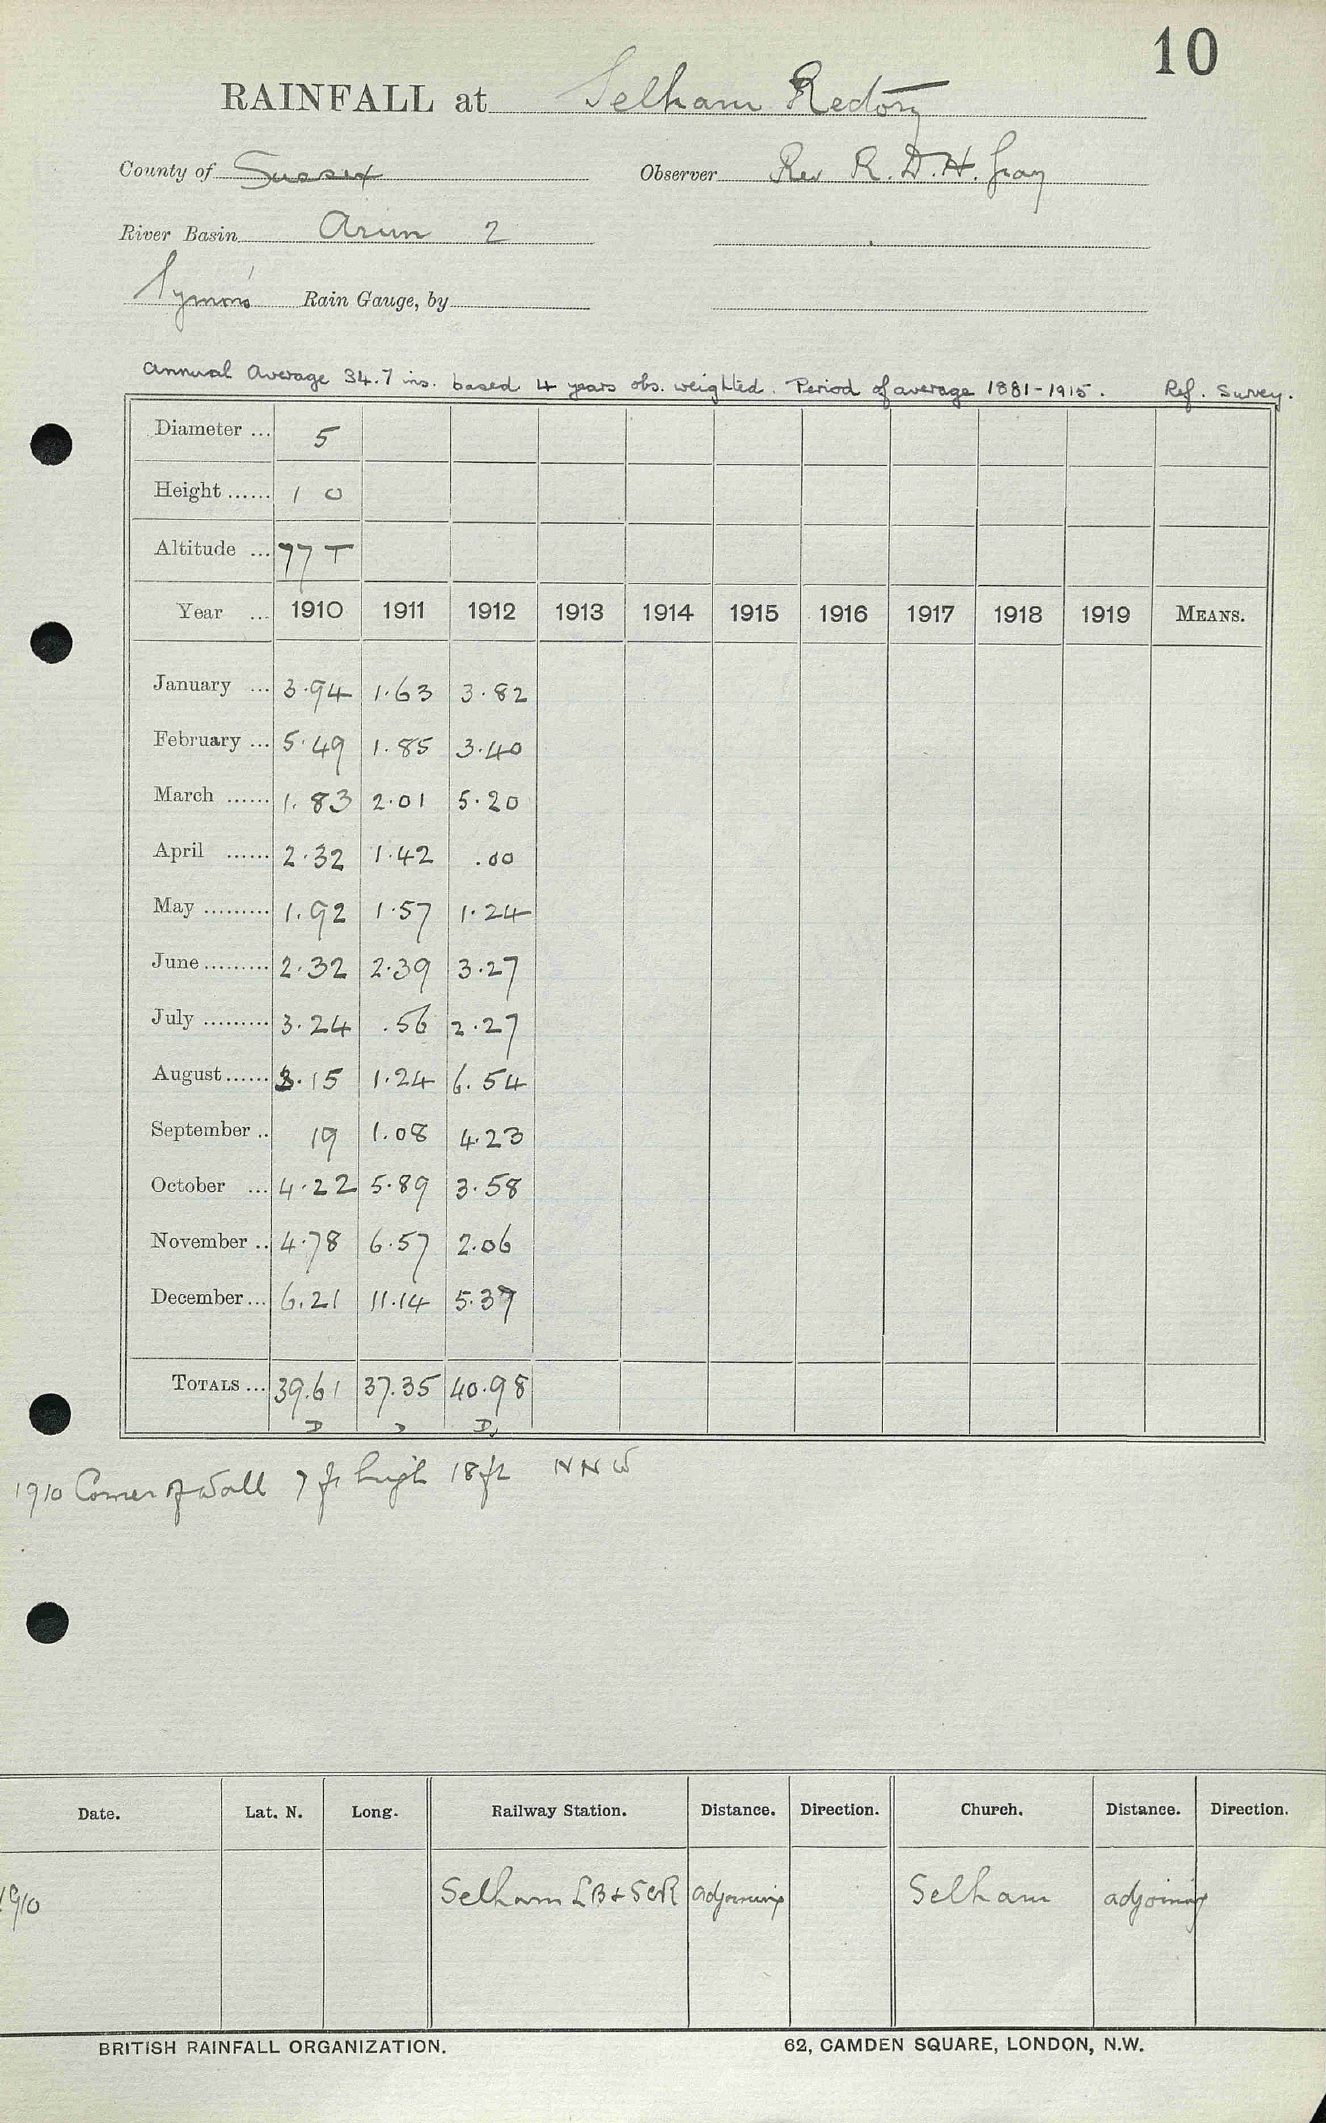 10
RAINFALL at Selham Rectory
County of Sussex Observer Rev R. D. H. Gray
River Basin Arun 2
Symons' Rain Gauge, by
Annual Average 34.7 ins. based 4 years obs. weighted. Period of average 1881-1915. Ref. Survey.
Diameter ... 5
Height ...... 1 0
Altitude ... 77 T
Year ... 1910 1911 1912 1913 1914 1915 1916 1917 1918 1919 MEANS.
January ... 3.94 1.63 3.82
February ... 5.49 1.85 3.40
March ...... 1.83 2.01 5.20
April ...... 2.32 1.42 .00
May ......... 1.92 1.57 1.24
June ......... 2.32 2.39 3.27
July ......... 3.24 .56 2.27
August ...... 3.15 1.24 6.54
September .. 19 1.08 4.23
October ... 4.22 5.89 3.58
November .. 4.78 6.57 2.06
December ... 6.21 11.14 5.37
TOTALS ... 39.61 37.35 40.98
D D D
1910 Corner of Wall 7 ft high 18 ft NNW
Date. Lat. N. Long. Railway Station. Distance. Direction. Church. Distance. Direction.
1910 Selham LB & SCR adjoining Selham adjoining
BRITISH RAINFALL ORGANIZATION. 62, CAMDEN SQUARE, LONDON, N.W.